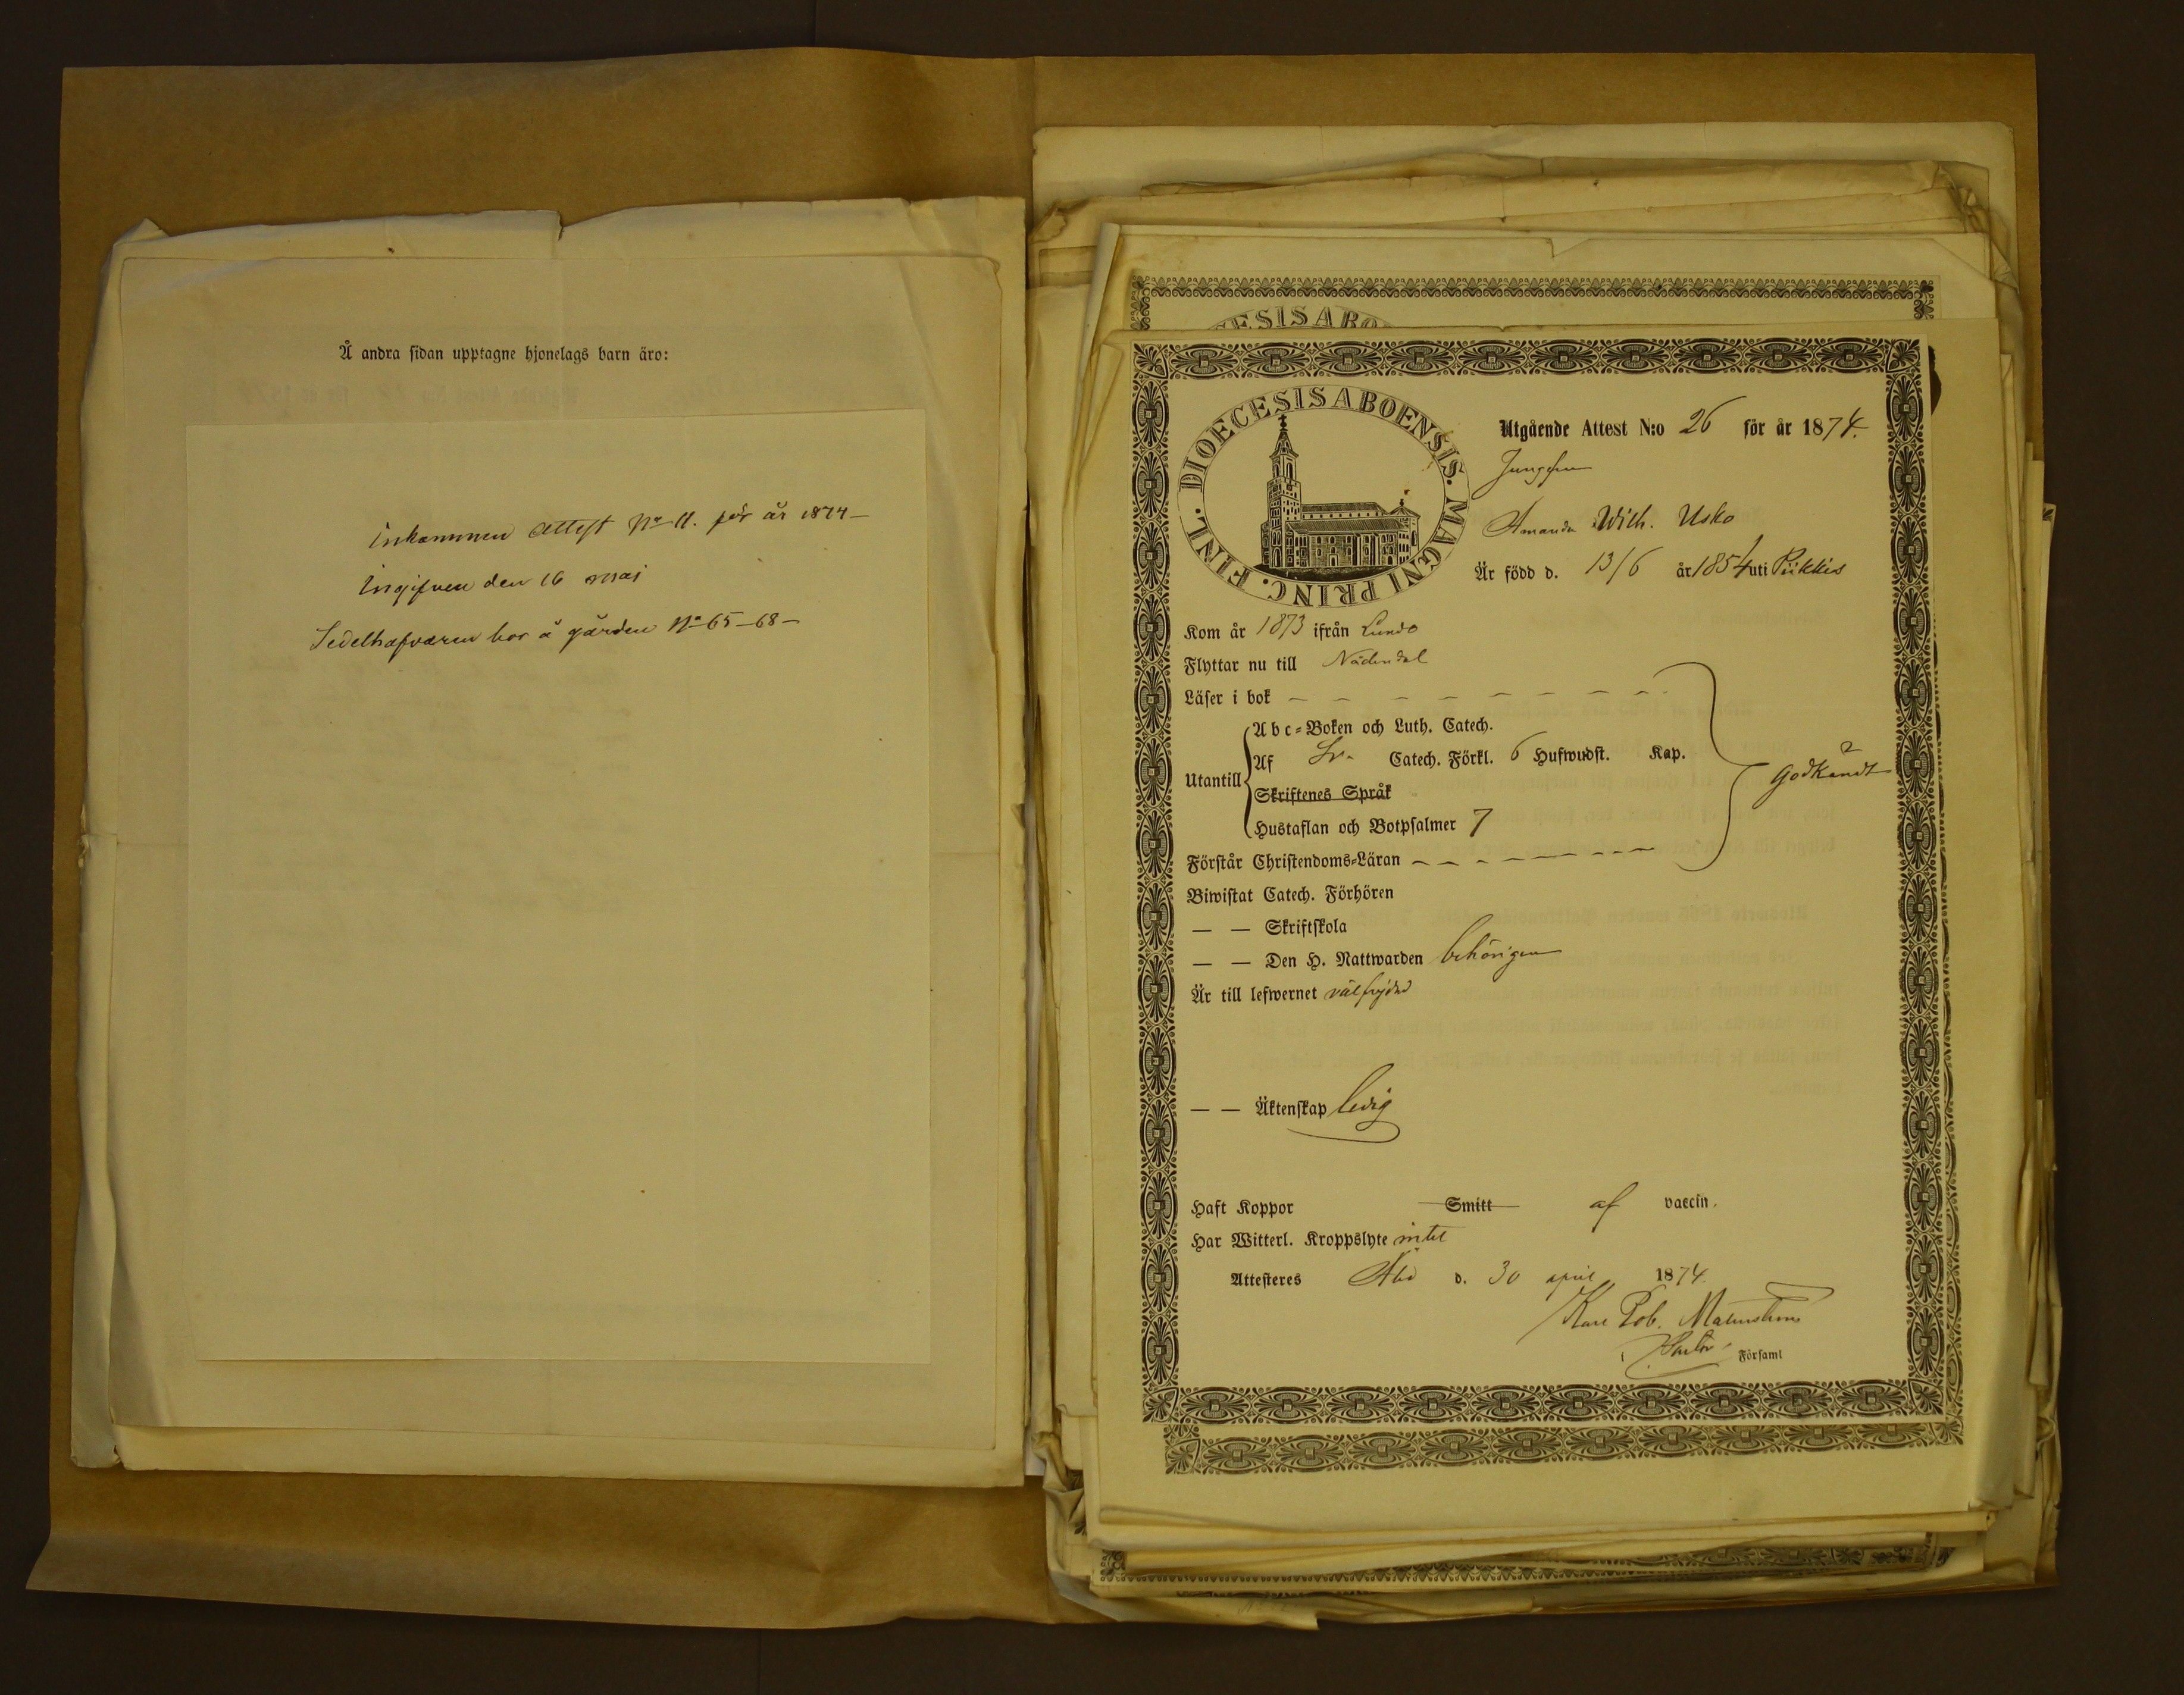 Å andra sidan upptagne hjonelags barn äro:
inkommen attest No 11. för år 1874 –
Ingifven den 16 maj
Sedelhafvaren bor å gården No 65–68 –
ESIS ABO
DIOECESIS ABOENSIS. MAGNI PRINC. FINL.
Utgående Attest N:o 26 för år 1874.
Jungfrun
Amanda Wilh. Usko
Är född d. 13/6 år 1854 uti Piikkis
Kom år 1873 ifrån Lundo
Flyttar nu till Nådendal
Läser i bok – – – – – – – –
Abc-Boken och Luth. Catech.
Utantill Af Sv. Catech. Förkl. 6 Hufwudst. Kap.
Godkändt
Skriftenes Språk
Hustaflan och Botpsalmer 7
Förstår Christendoms-Läran – – – – – – – –
Biwistat Catech. Förhören
— — Skriftskola
— — Den H. Nattwarden behörigen
Är till lefwernet välfrejdad
— — Äktenskap ledig
Haft Koppor Smitt af vaccin.
Har Witterl. Kroppslyte intet
Attesteres Åbo d. 30 april 1874.
Karl Rob. Malmström
Pastor Församl